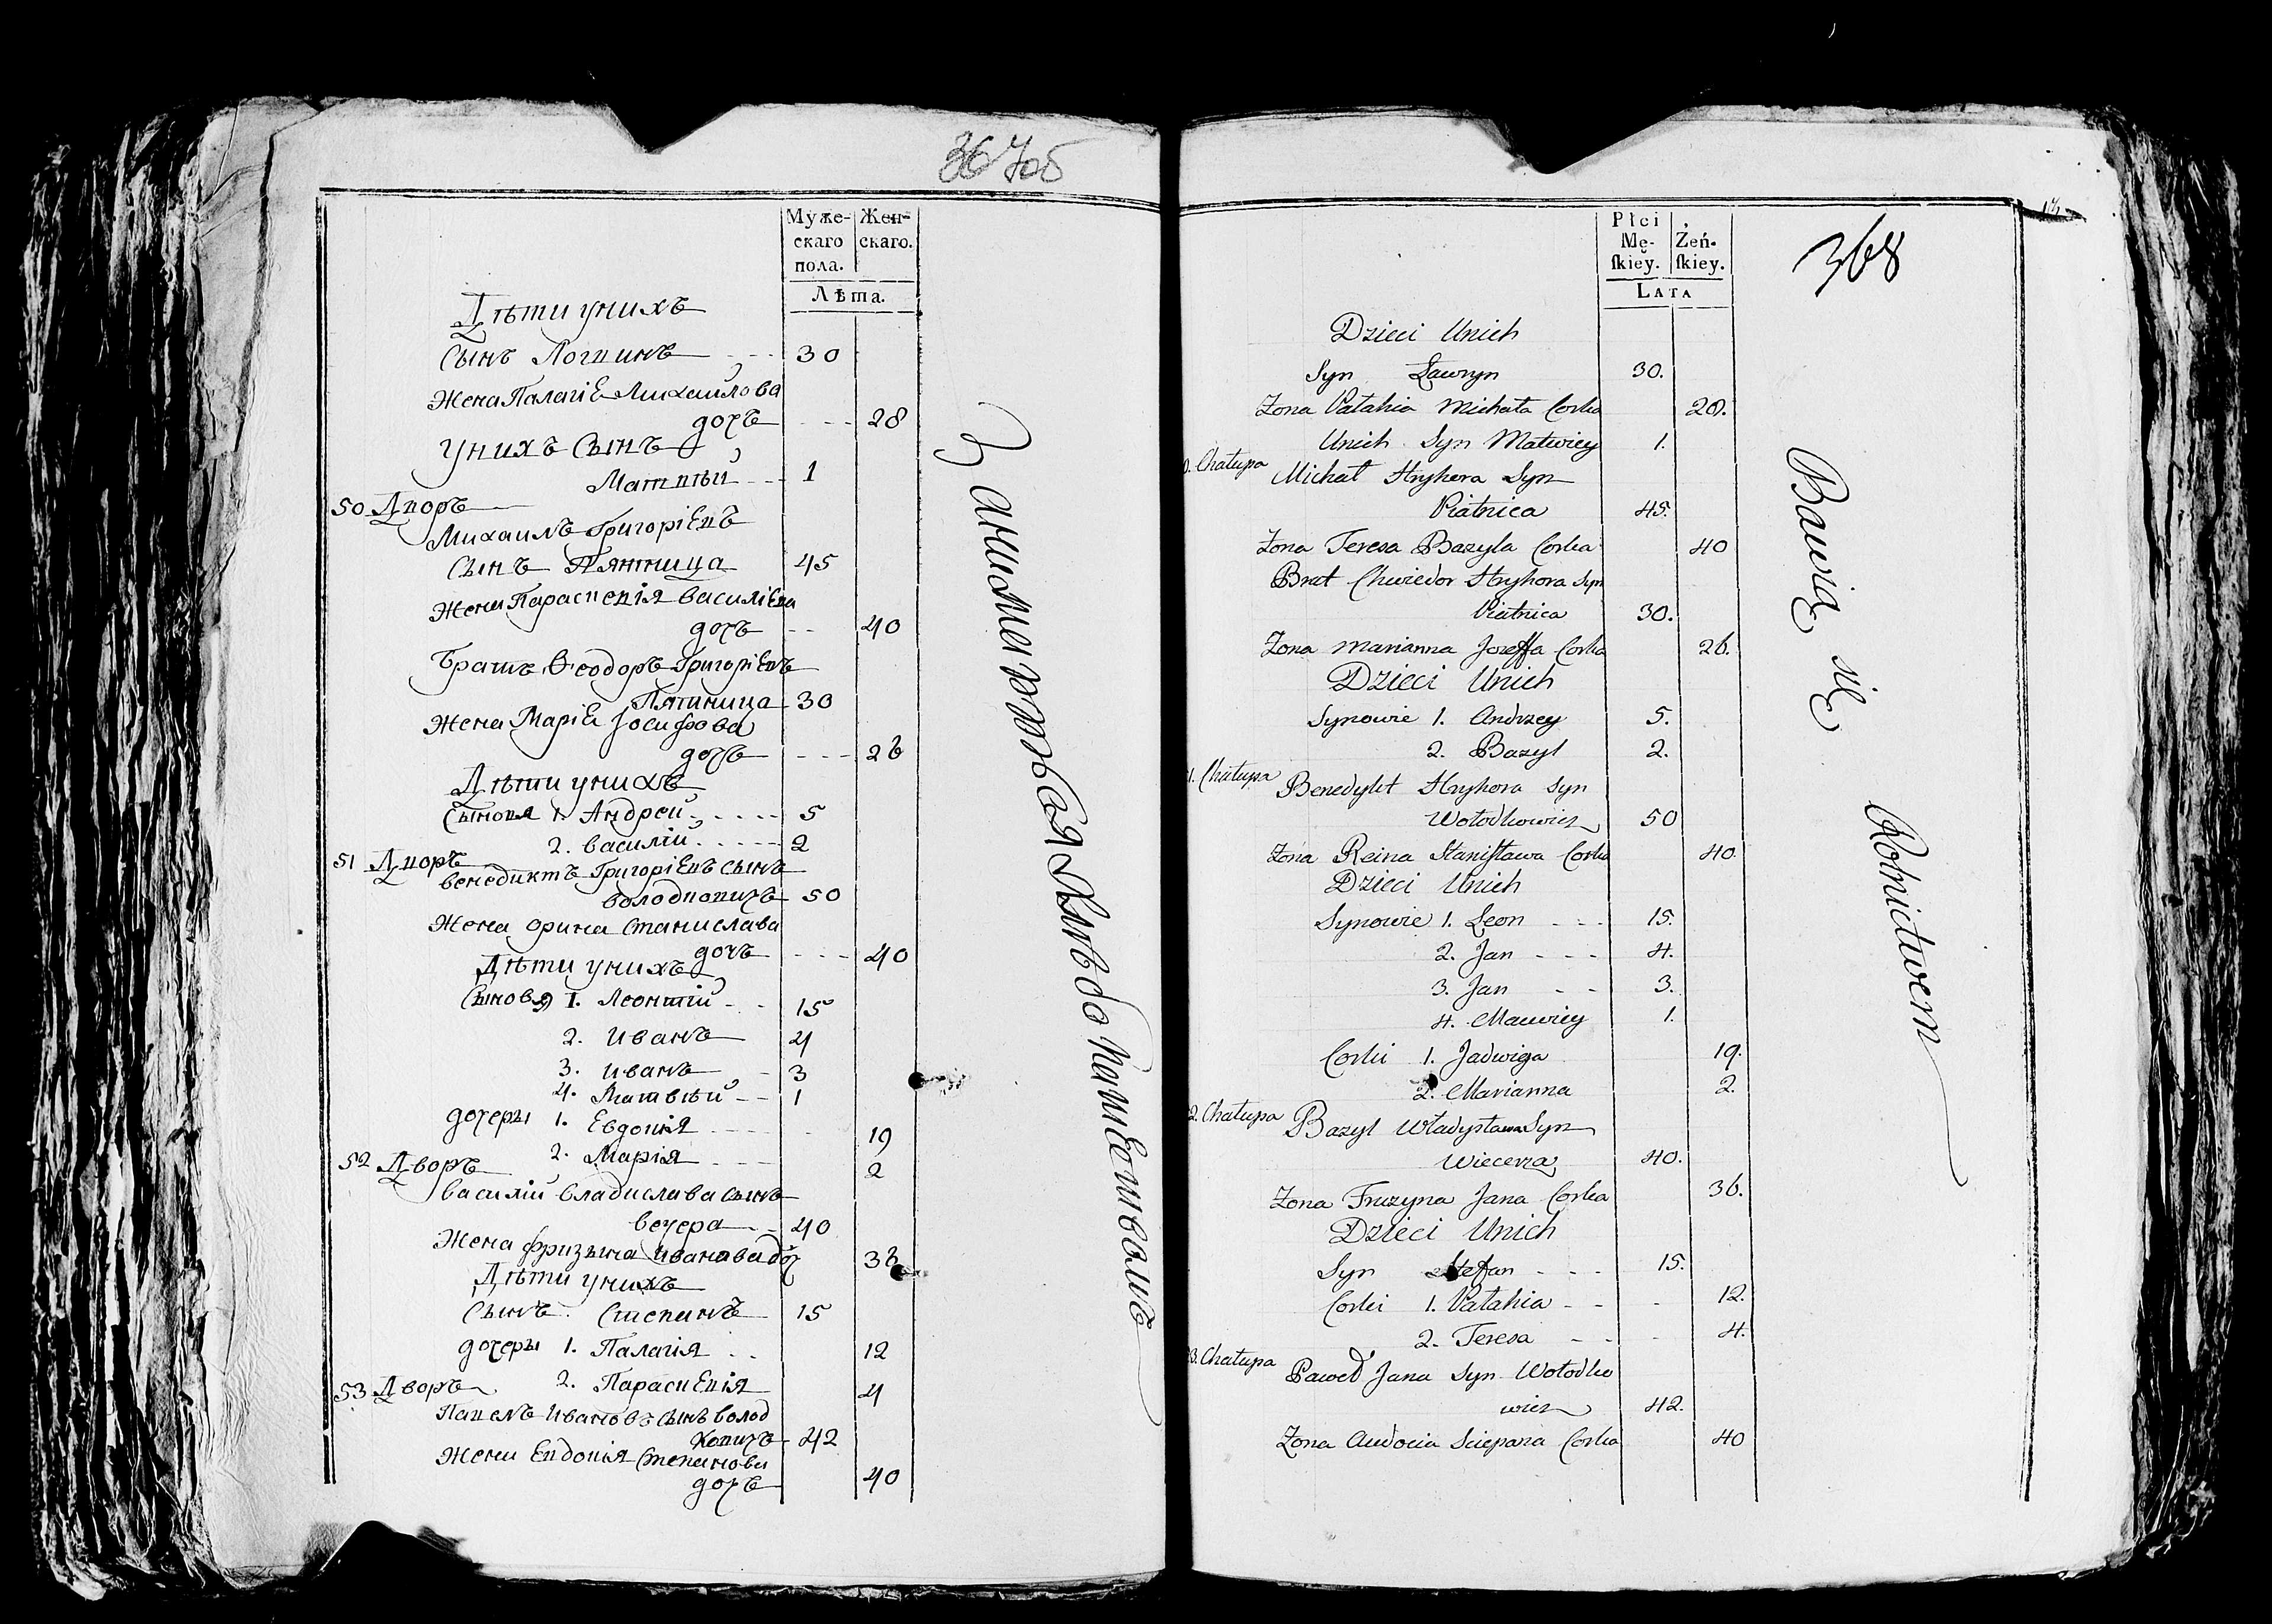 367об
Муже-
скаго
пола.
Жен-
скаго.
Лѣта.
Дѣти унихъ
Сынъ Логвинъ 30
Жена Палагіе Михаилова
дочъ 28
Унихъ Сынъ
Матвѣй 1
50 Дворъ
Михаилъ Григоріевъ
Сынъ Пятница 45
Жена Парасвевія Василіева
дочъ 40
Братъ Ѳеодоръ Григоріевъ
Пятница 30
Жена Маріе Іосифова
дочъ 26
Дѣти унихъ
Сыновя 1. Андрей 5
2. Василій 2
51 Дворъ
Венедиктъ Григоріевъ Сынъ
Володковичъ 50
Жена Орина Станислава
дочъ 40
Дѣти унихъ
Сыновя 1. Леонтій 15
2. Иванъ 4
3. Иванъ 3
4. Матвѣй 1
дочеры 1. Евдокія 19
2. Марія 2
52 Дворъ
Василій Владислава Сынъ
Вечера 40
Жена Фризына Иванава доч 36
Дѣти унихъ
Сынъ Степанъ 15
дочеры 1. Палагія 12
2. Парасвевія 4
53 Дворъ
Павелъ Ивановъ Сынъ Волод
ковичъ 42
Жена Евдокія Степанова
дочъ 40
Занимаються Хлѣбопашествомъ
368
Płci
Mę-
ſkiey.
Żeń-
ſkiey.
LATA
Dzieci Unich
Syn Ławryn 30.
Zona Pałahia Michała Corka 28.
Unich Syn Matwiey 1.
0. Chałupa
Michał Hryhora Syn
Piatnica 45.
Zona Teresa Bazyla Corka 40
Brat Chwiedor Hryhora Syn
Piatnica 30.
Zona Marianna Jozeffa Corka 26.
Dzieci Unich
Synowie 1. Andrzey 5.
2. Bazyl 2.
1. Chałupa
Benedykt Hryhora Syn
Wołodkowicz 50
Zona Reina Stanisława Corka 40.
Dzieci Unich
Synowie 1. Leon 15.
2. Jan 4.
3. Jan 3.
4. Mawiey 1.
Corki 1. Jadwiga 19.
2. Marianna 2.
2. Chałupa
Bazyl Władysława Syn
Wieczerza 40.
Zona Fruzyna Jana Corka 36.
Dzieci Unich
Syn Stefan 15.
Corki 1. Pałahia 12.
2. Teresa 4.
3. Chałupa
Paweł Jana Syn Wołodko
wicz 42.
Zona Audocia Sciepana Corka 40
Bawią się Rolnictwem